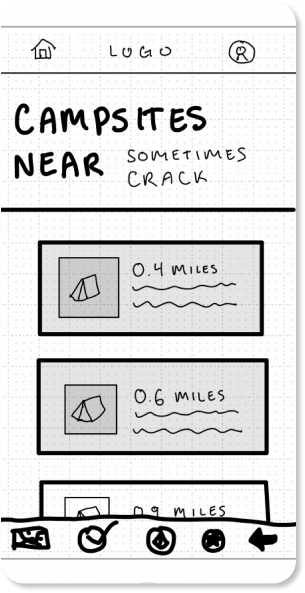 LOGO
R
CAMPSITES
NEAR SOMETIMES
CRACK
0.4 MILES
0.6 MILES
0.9 MILES